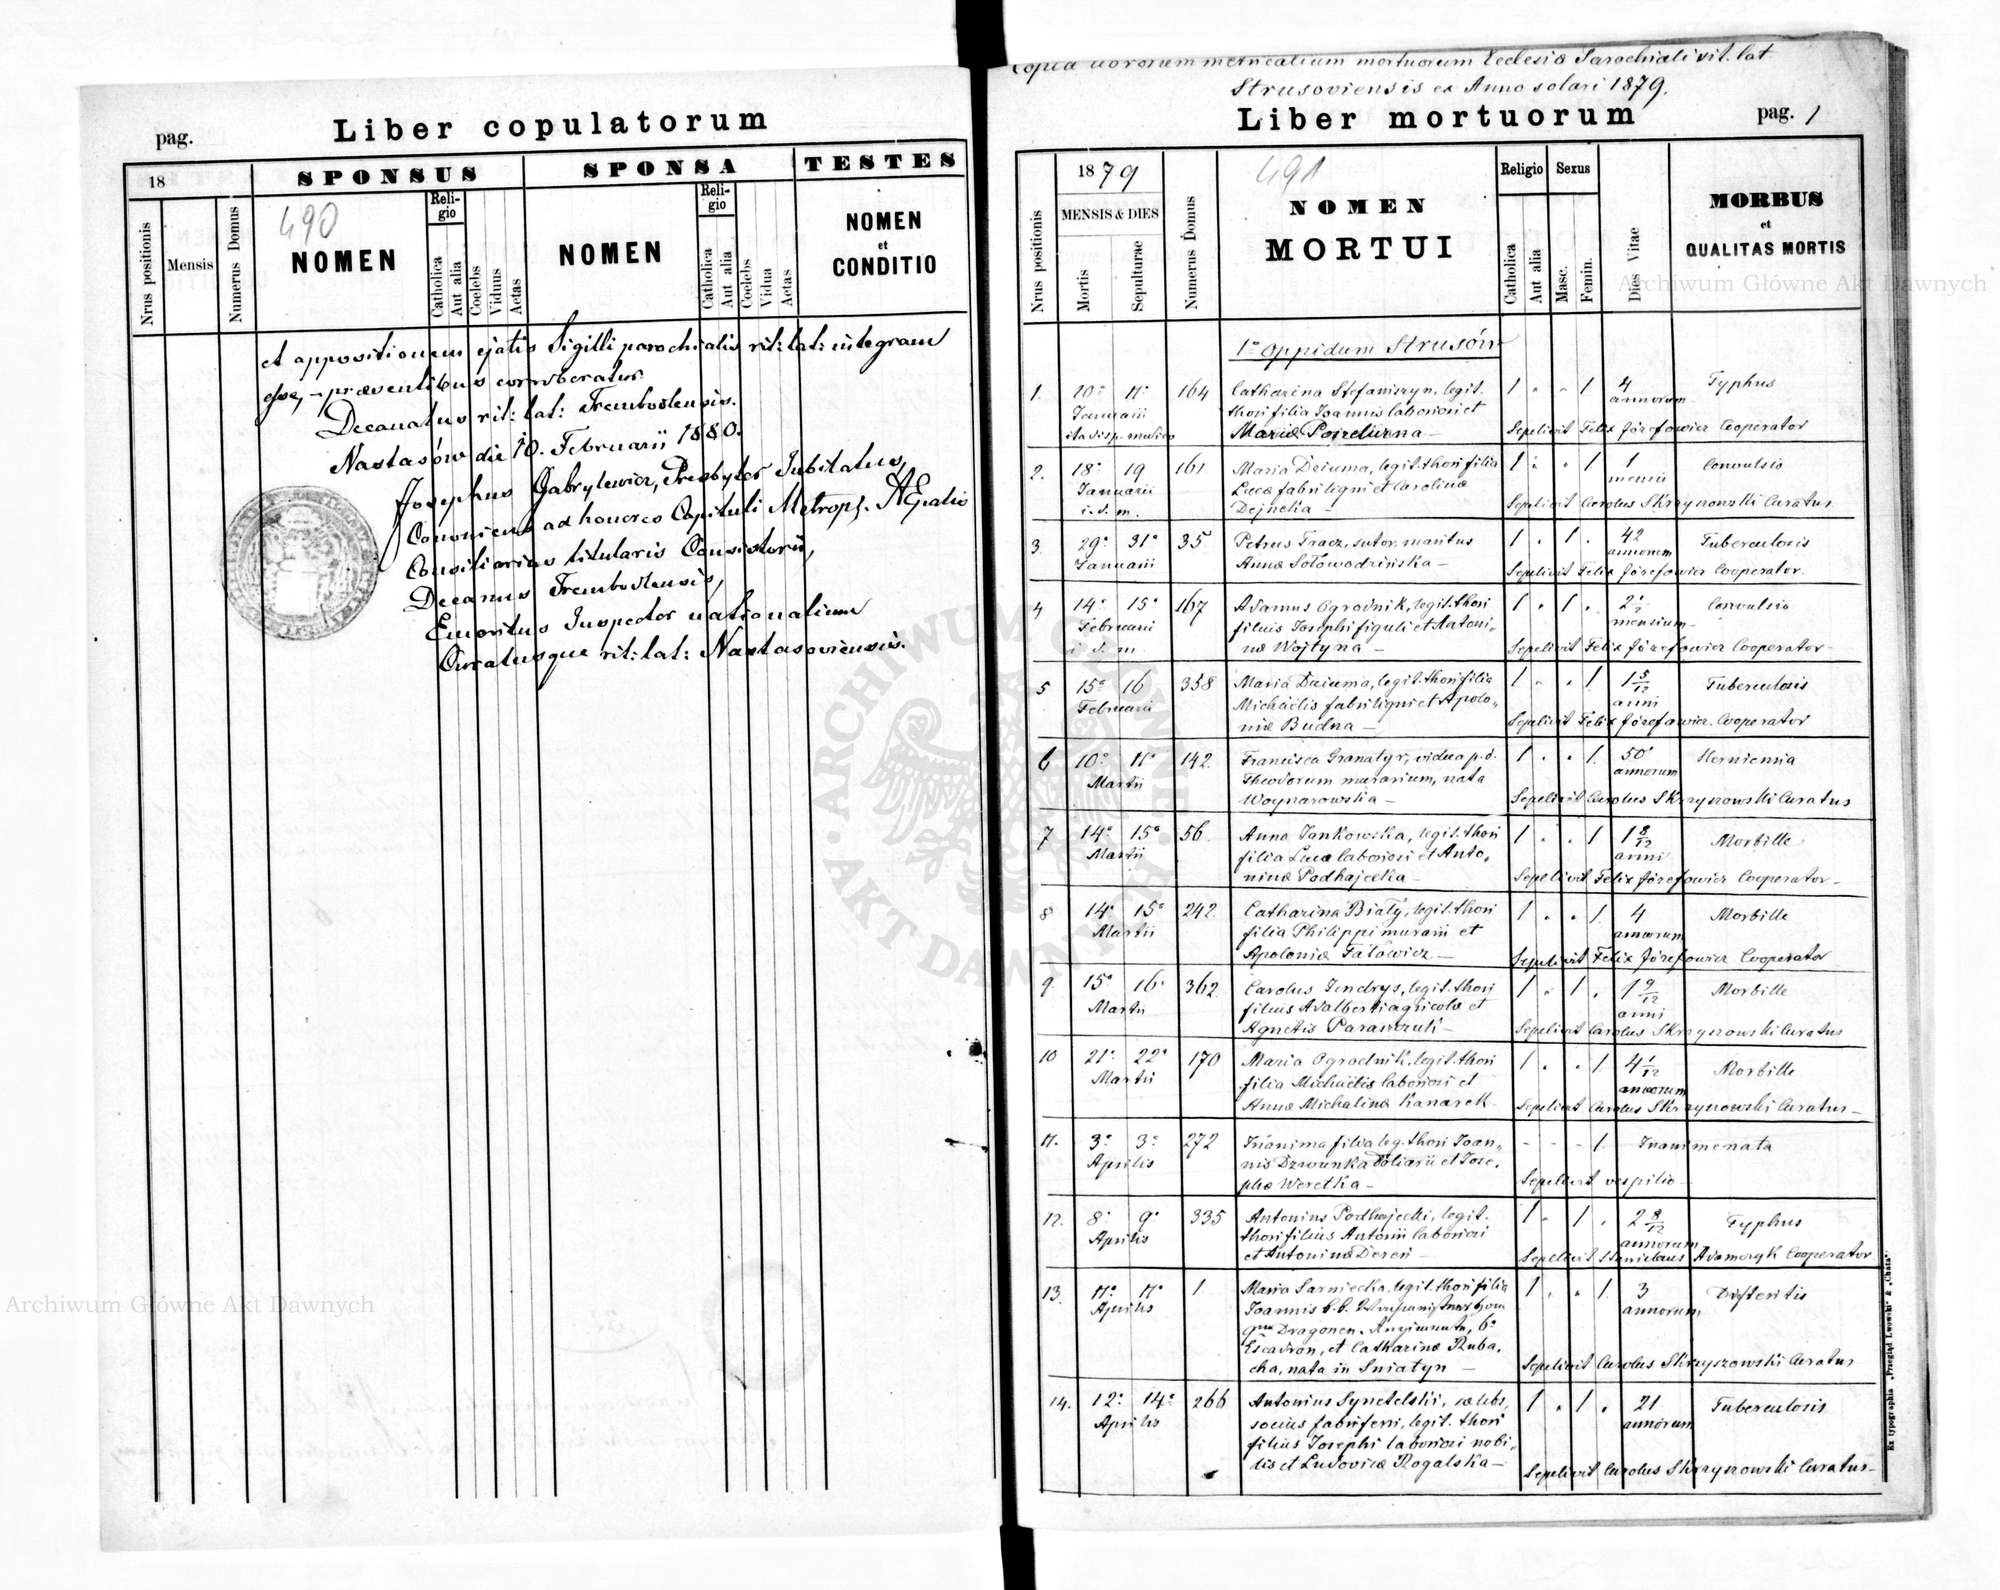 pag.
Liber copulatorum
18
SPONSUS
SPONSA
TESTES
Nrus positionis
Mensis
Numerus Domus
490
NOMEN
Religio
Catholica
Aut alia
Coelebs
Viduus
Aetas
NOMEN
Religio
Catholica
Aut alia
Coelebs
Vidua
Aetas
NOMEN
et
CONDITIO
et appositionem ejatis Sigilli parochialis rit: lat: integram
esse, præsentibus corroboratur
Decanatus rit: lat: Trembovlensis.
Nastasów die 10. Februarii 1880.
Josephus Gabrylewicz, Presbyter Jubilatus,
Canonicus ad honores Capituli Metropl.
Consiliarius titularis Consistorii,
Decanus Trembovlensis,
Emeritus Inspector nationalium
Curatusque rit: lat: Nastasoviensis.
Copia librorum metricalium mortuorum Ecclesiæ Parochialis rit. lat
Strusoviensis ex Anno solari 1879.
Liber mortuorum
pag. 1
Nrus positionis
1879
MENSIS & DIES
Mortis
Sepulturae
Numerus Domus
491
NOMEN
MORTUI
Religio
Catholica
Aut alia
Sexus
Masc.
Femin.
Dies Vitae
MORBUS
et
QUALITAS MORTIS
1º Oppidum Strusów
1. 10º 11º 164 Catharina Stefaniszyn, legit. 1 " " 1 4 Typhus
Januarii thori filia Joannis laboriosi et annorum
Mariæ
Sepelivit Felix Józefowicz Cooperator
2. 18º 19 161 Maria Dziuma, legit. thori filia 1 " " 1 1 Convulsio
Januarii Lucæ fabri ligni et Carolinæ mensis
i. d. m. Dejneka — Sepelivit Carolus Skrzyszowski Curatus
3. 29º 31º 35 Petrus Tracz, sutor, maritus 1 " 1 " 42 Tuberculosis
Januarii Annæ Sołowodzińska — annorum
Sepelivit Felix Józefowicz Cooperator.
4 14º 15º 167 Adamus Ogrodnik, legit. thori 1 " 1 " 2 1/2 Convulsio
Februarii filius Josephi figuli et Antoni- mensium
i. d. m. næ Wojtyna — Sepelivit Felix Józefowicz Cooperator
5 15º 16 358 Maria Dziuma, legit. thori filia 1 " " 1 1 5/12 Tuberculosis
Februarii Michaëlis fabri ligni et Apolo- anni
niæ Budna — Sepelivit Felix Józefowicz Cooperator
6 10º 11º 142 Francisca Granatyr, vidua p. d. 1 " " 1 50 Herniemia
Martii Theodorum murarium, nata annorum
Woynarowska — Sepelivit Carolus Skrzyszowski Curatus
7 14º 15º 56 Anna Jankowska, legit. thori 1 " " 1 1 8/12 Morbille
Martii filia Lucæ laboriosi et Anto- anni
ninæ Podhajecka — Sepelivit Felix Józefowicz Cooperator
8 14º 15º 242 Catharina Biały, legit. thori 1 " " 1 4 Morbille
Martii filia Philippi murarii et annorum
Apoloniæ Fałowicz — Sepelivit Felix Józefowicz Cooperator
9 15º 16º 362 Carolus Jendrys, legit. thori 1 " 1 " 1 9/12 Morbille
Martii filius Adalberti agricolæ et anni
Agnetis Paraszczuk — Sepelivit Carolus Skrzyszowski Curatus
10 21º 22º 170 Maria Ogrodnik, legit. thori 1 " " 1 4 1/12 Morbille
Martii filia Michaëlis laboriosi et annorum
Annæ Michalinæ Kanarek Sepelivit Carolus Skrzyszowski Curatus
11. 3º 3º 272 Inanima filia leg. thori Joan- - - - 1 Inanime nata
Aprilis nis Dzwunka doliarii et Jose-
phæ Weretka — Sepelivit vespilio
12. 8º 9º 335 Antonius Podhajecki, legit. 1 " 1 " 2 8/12 Typhus
Aprilis thori filius Antonii laboriosi annorum
et Antoninæ Dereń — Sepelivit Stanislaus Adamczyk Cooperator
13. 11º 11º 1 Maria Sarniecka, legit. thori filia 1 " " 1 3 Difteritis
Aprilis Joannis annorum
Dragonen 6º
Escadron, et Catharinæ Ruba-
cha, nata in Sniatyn — Sepelivit Carolus Skrzyszowski Curatus
14. 12º 14º 266 Antonius Synetelski, cælebs, 1 " 1 " 21 Tuberculosis
Aprilis socius fabri ferri, legit. thori annorum
filius Josephi laboriosi nobi-
lis et Ludovicæ Rogalska — Sepelivit Carolus Skrzyszowski Curatus
Ex typographia „Przegląd Lwowski“ & „Chata“.
Archiwum Główne Akt Dawnych
Archiwum Główne Akt Dawnych
ARCHIWUM GŁÓWNE
AKT DAWNYCH